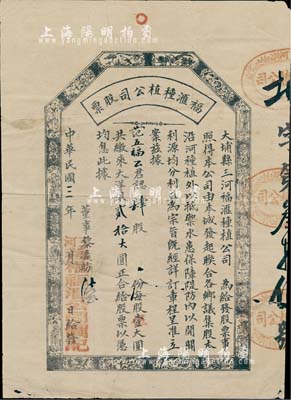 上海陽明拍賣
www.yangmingauction.com
福滙種植公司股票
大埔縣三河福滙種植公司 為給發股票事
照得本公司由本城發起聯合各鄉議集股本
沿河種植外以抵禦水患保障隄防內以開闢
利源均分利益為宗旨既經詳訂章程呈准立
案茲據
范五福公君認肆股 份每股壹大圓
共繳來大 貳拾大圓正合給股票以憑
均息此據
董事
中華民國三年 月 日給發
北字第 號